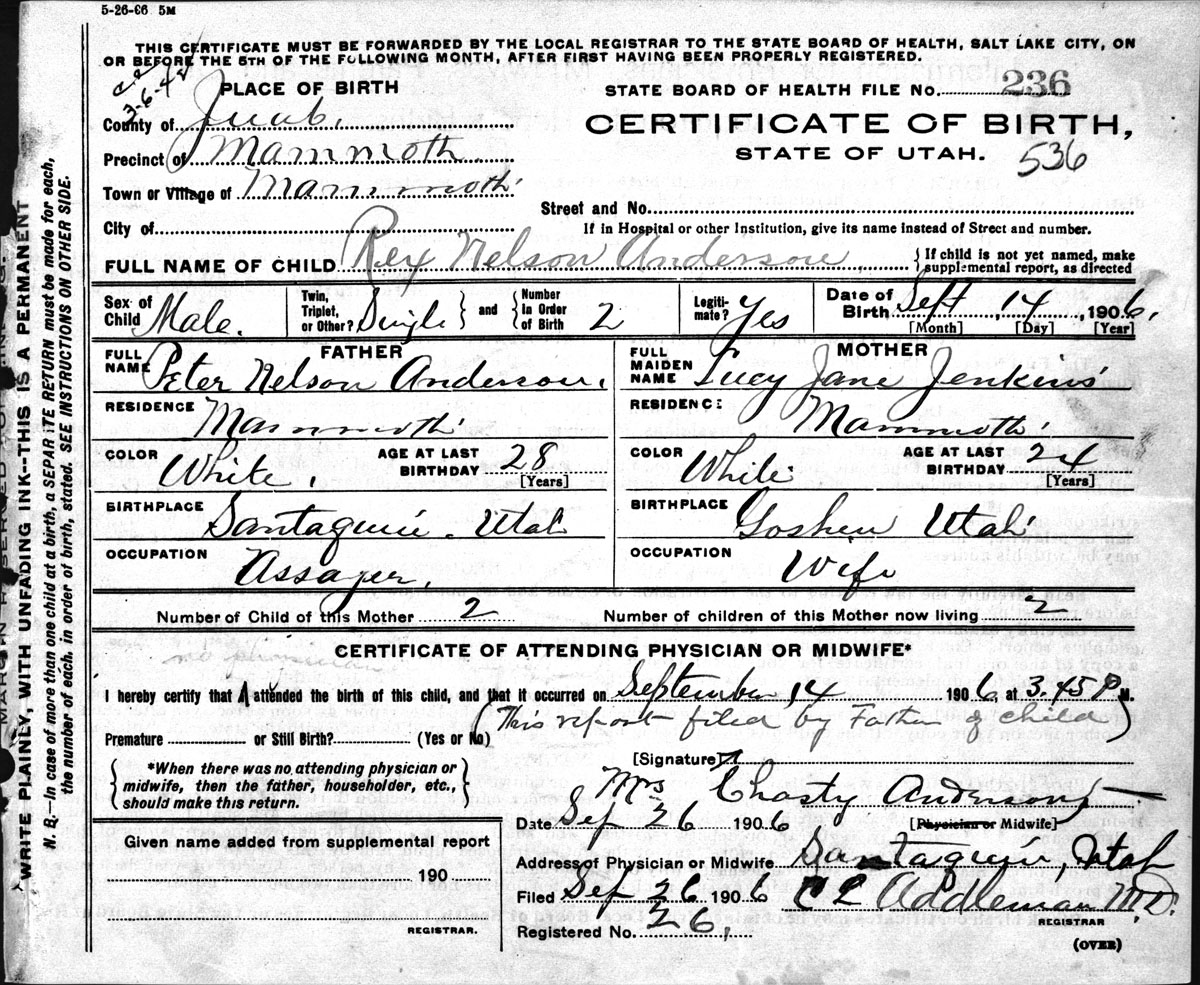 5-26-06 5M
THIS CERTIFICATE MUST BE FORWARDED BY THE LOCAL REGISTRAR TO THE STATE BOARD OF HEALTH, SALT LAKE CITY, ON
OR BEFORE THE 5TH OF THE FOLLOWING MONTH, AFTER FIRST HAVING BEEN PROPERLY REGISTERED.
3-6-42
PLACE OF BIRTH
STATE BOARD OF HEALTH FILE No. 236
County of Juab,
CERTIFICATE OF BIRTH,
Precinct of Mammoth
STATE OF UTAH. 536
Town or Village of Mammoth
Street and No.
City of
If in Hospital or other Institution, give its name instead of Street and number.
FULL NAME OF CHILD Rex Nelson Anderson
{ If child is not yet named, make supplemental report, as directed
Sex of Child Male.
Twin, Triplet, or Other? Single } and { Number in Order of Birth 2
Legitimate? Yes
Date of Birth Sept 14, 1906,
[Month] [Day] [Year]
FATHER
FULL NAME Peter Nelson Anderson.
RESIDENCE Mammoth
COLOR White.
AGE AT LAST BIRTHDAY 28
[Years]
BIRTHPLACE Santaquin. Utah
OCCUPATION Assayer.
MOTHER
FULL MAIDEN NAME Lucy Jane Jenkins
RESIDENCE Mammoth
COLOR White
AGE AT LAST BIRTHDAY 24
[Years]
BIRTHPLACE Goshen Utah
OCCUPATION Wife
Number of Child of this Mother 2
Number of children of this Mother now living 2
CERTIFICATE OF ATTENDING PHYSICIAN OR MIDWIFE*
no physician
I hereby certify that I attended the birth of this child, and that it occurred on September 14 1906, at 3.45 P M.
(This report filed by Father of child)
Premature or Still Birth? (Yes or No)
[Signature]
{ *When there was no attending physician or midwife, then the father, householder, etc., should make this return. }
Mrs Chasty Anderson
Date Sep 26 1906
[Physician or Midwife]
Given name added from supplemental report
190
REGISTRAR.
Address of Physician or Midwife Santaquin, Utah
Filed Sep 26 1906 C E Addleman M.D.
REGISTRAR
Registered No. 26,
(OVER)
WRITE PLAINLY, WITH UNFADING INK--THIS IS A PERMANENT
N. B.—In case of more than one child at a birth, a SEPARATE RETURN must be made for each,
the number of each, in order of birth, stated. SEE INSTRUCTIONS ON OTHER SIDE.